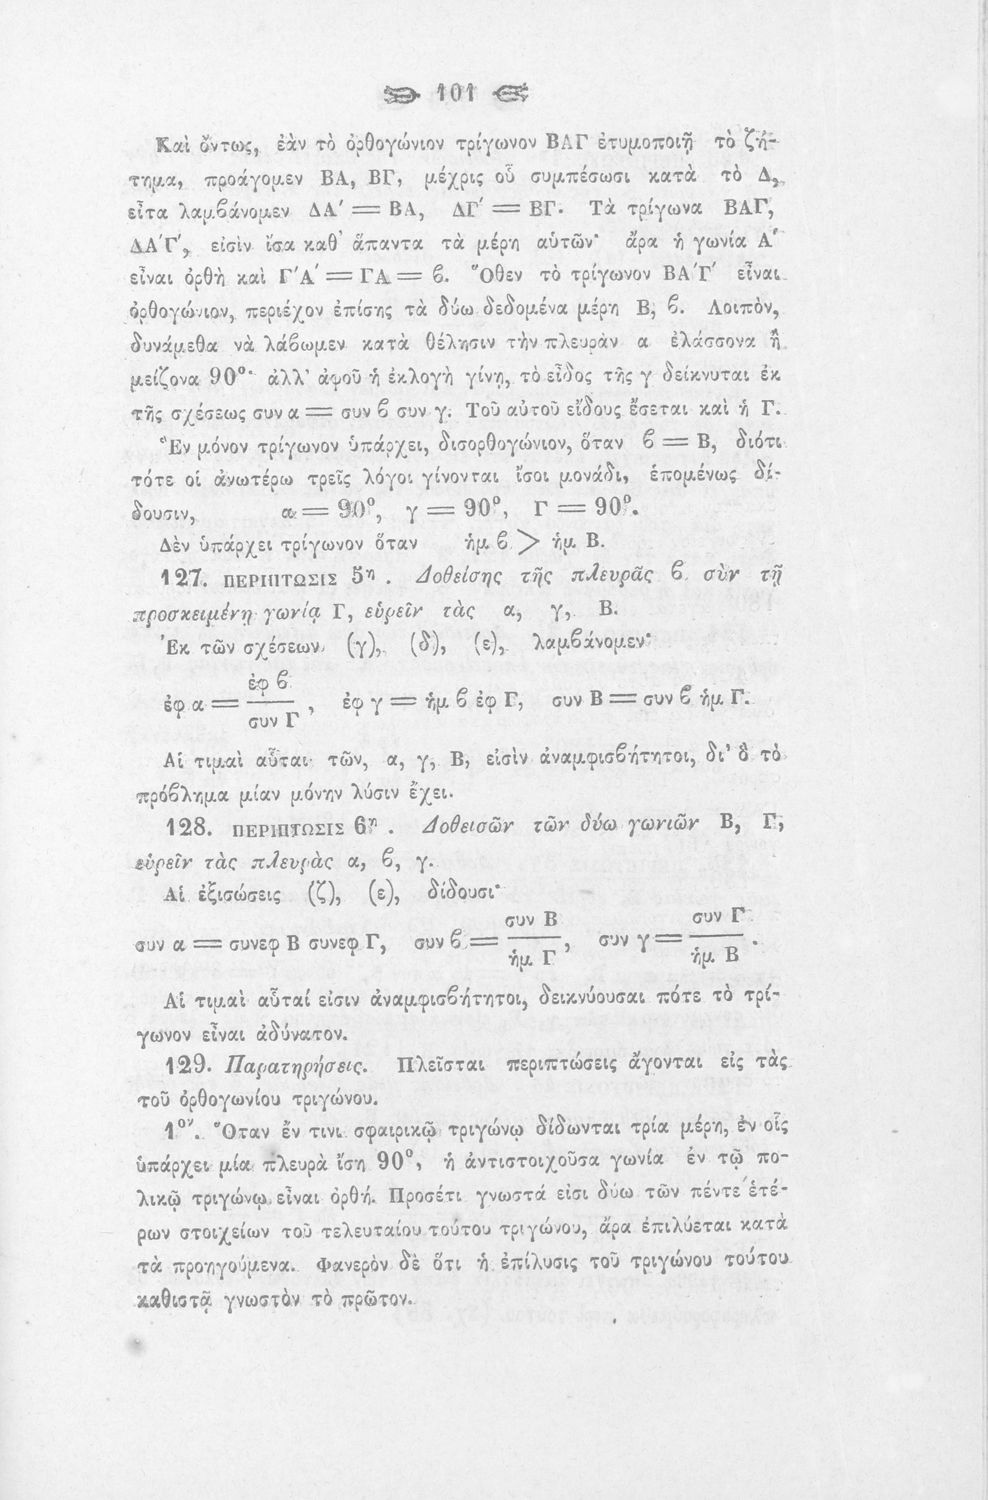 101
Καὶ ὄντως, ἐὰν τὸ ὀρθογώνιον τρίγωνον ΒΑΓ ἐτυμοποιῇ τὸ ζή-
τημα, προάγομεν ΒΑ, ΒΓ, μέχρις οὗ συμπέσωσι κατὰ τὸ Δ,
εἶτα λαμβάνομεν ΔΑ′ = ΒΑ, ΔΓ′ = ΒΓ. Τὰ τρίγωνα ΒΑΓ,
ΔΑ′Γ′, εἰσὶν ἴσα καθ᾽ ἅπαντα τὰ μέρη αὑτῶν· ἄρα ἡ γωνία Α′
εἶναι ὀρθὴ καὶ Γ′Α′ = ΓΑ = ϐ. Ὅθεν τὸ τρίγωνον ΒΑ′Γ′ εἶναι
ὀρθογώνιον, περιέχον ἐπίσης τὰ δύω δεδομένα μέρη Β, ϐ. Λοιπὸν,
δυνάμεθα νὰ λάϐωμεν κατὰ θέλησιν τὴν πλευρὰν α ἐλάσσονα ἢ
μείζονα 90°· ἀλλ᾽ ἀφοῦ ἡ ἐκλογὴ γίνῃ, τὸ εἶδος τῆς γ δείκνυται ἐκ
τῆς σχέσεως συν α = συν ϐ συν γ. Τοῦ αὐτοῦ εἴδους ἔσεται καὶ ἡ Γ.
Ἓν μόνον τρίγωνον ὑπάρχει, δισορθογώνιον, ὅταν ϐ = Β, διότι
τότε οἱ ἀνωτέρω τρεῖς λόγοι γίνονται ἴσοι μονάδι, ἑπομένως δί-
δουσιν, α = 90°, γ = 90°, Γ = 90°.
Δὲν ὑπάρχει τρίγωνον ὅταν ἡμ ϐ > ἡμ Β.
127. ΠΕΡΙΠΤΩΣΙΣ 5η. Δοθείσης τῆς πλευρᾶς ϐ σὺν τῇ
προσκειμένῃ γωνίᾳ Γ, εὑρεῖν τὰς α, γ, Β.
Ἐκ τῶν σχέσεων (γ), (δ), (ε), λαμϐάνομεν·
ἐφ α = ἐφ ϐ / συν Γ, ἐφ γ = ἡμ ϐ ἐφ Γ, συν Β = συν ϐ ἡμ Γ.
Αἱ τιμαὶ αὗται τῶν, α, γ, Β, εἰσὶν ἀναμφισϐήτητοι, δι᾽ ὃ τὸ
πρόϐλημα μίαν μόνην λύσιν ἔχει.
128. ΠΕΡΙΠΤΩΣΙΣ 6η. Δοθεισῶν τῶν δύω γωνιῶν Β, Γ,
εὑρεῖν τὰς πλευρὰς α, ϐ, γ.
Αἱ ἐξισώσεις (ζ), (ε), δίδουσι·
συν α = συνεφ Β συνεφ Γ, συν ϐ = συν Β / ἡμ Γ, συν γ = συν Γ / ἡμ Β.
Αἱ τιμαὶ αὗταί εἰσιν ἀναμφισϐήτητοι, δεικνύουσαι πότε τὸ τρί-
γωνον εἶναι ἀδύνατον.
129. Παρατηρήσεις. Πλεῖσται περιπτώσεις ἄγονται εἰς τὰς
τοῦ ὀρθογωνίου τριγώνου.
1ον. Ὅταν ἔν τινι σφαιρικῷ τριγώνῳ δίδωνται τρία μέρη, ἐν οἷς
ὑπάρχει μία πλευρὰ ἴση 90°, ἡ ἀντιστοιχοῦσα γωνία ἐν τῷ πο-
λικῷ τριγώνῳ εἶναι ὀρθή. Προσέτι γνωστά εἰσι δύω τῶν πέντε ἑτέ-
ρων στοιχείων τοῦ τελευταίου τούτου τριγώνου, ἄρα ἐπιλύεται κατὰ
τὰ προηγούμενα. Φανερὸν δὲ ὅτι ἡ ἐπίλυσις τοῦ τριγώνου τούτου
καθιστᾷ γνωστὸν τὸ πρῶτον.